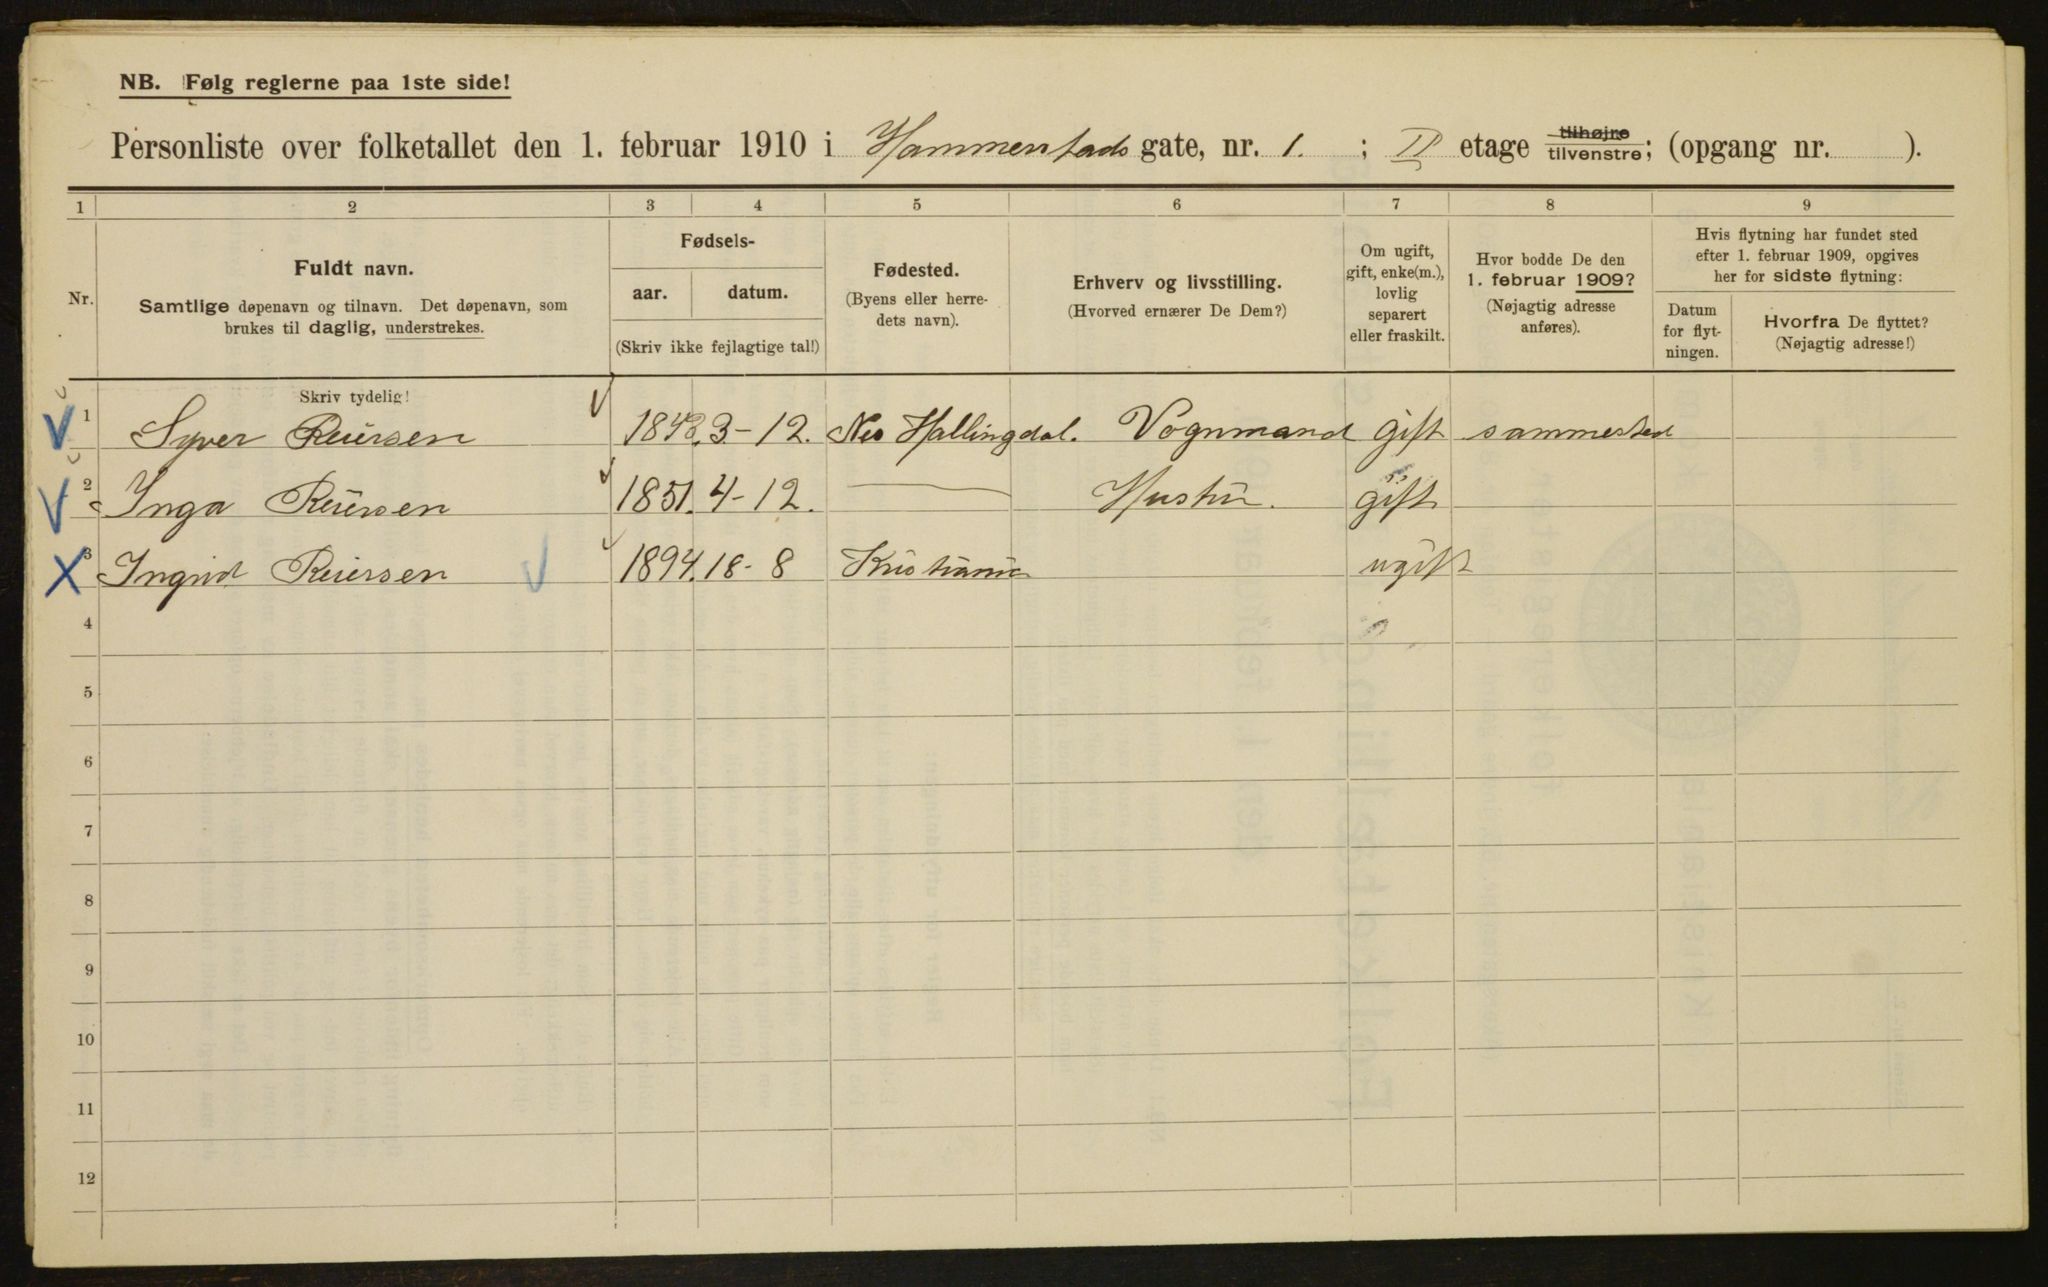 NB. Følg reglerne paa 1ste side!
Personliste over folketallet den 1. februar 1910 i Hammerstads gate, nr. 1. ; II etage tilhøjre tilvenstre; (opgang nr. ).
1 2 3 4 5 6 7 8 9
Nr.
Fuldt navn.
Samtlige døpenavn og tilnavn. Det døpenavn, som
brukes til daglig, understrekes.
Fødsels-
aar. datum.
(Skriv ikke fejlagtige tal!)
Fødested.
(Byens eller herre-
dets navn).
Erhverv og livsstilling.
(Hvorved ernærer De Dem?)
Om ugift,
gift, enke(m.),
lovlig
separert
eller fraskilt.
Hvor bodde De den
1. februar 1909?
(Nøjagtig adresse
anføres).
Hvis flytning har fundet sted
efter 1. februar 1909, opgives
her for sidste flytning:
Datum
for flyt-
ningen.
Hvorfra De flyttet?
(Nøjagtig adresse!)
Skriv tydelig!
1 Syver Reiersen 1848. 3-12. Nes Hallingdal. Vognmand gift sammested
2 Inga Reiersen 1851. 4-12. — Hustru. gift
3 Ingrid Reiersen 1894. 18-8 Kristiania ugift
4
5
6
7
8
9
10
11
12